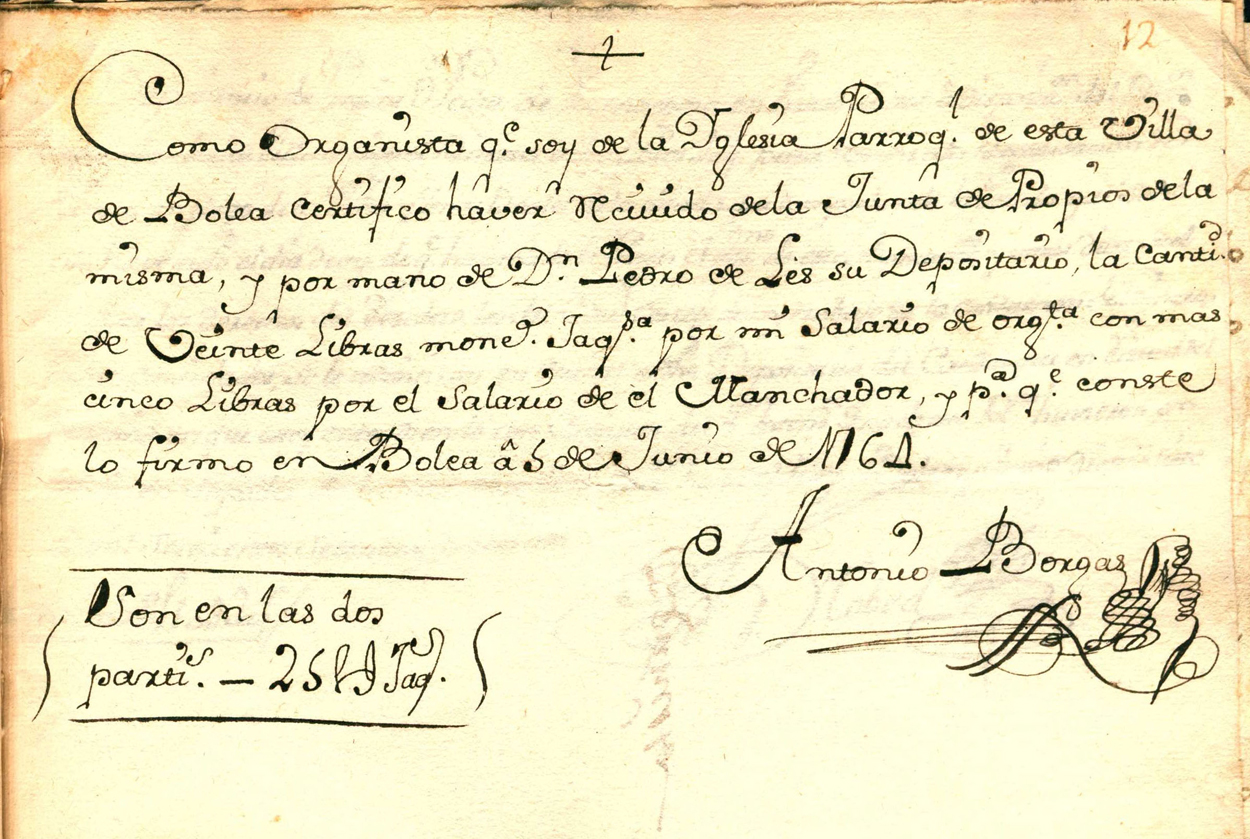 12
Como Organista q.e soy de la Yglesia Parroq.l de esta Villa
de Bolea Certifico haver Recivido de la Junta de Propios de la
misma, y por mano de D.n Pedro de Les su Depositario, la Canti.d
de Veinte Libras mone.s Jaq.sa por mi Salario de org.ta con mas
cinco Libras por el Salario de el Manchador, y p.a q.e conste
lo firmo en Bolea â 5 de Junio de 1764.
Antonio Borgas
Son en las dos
parti.s — 25 Jaq.s